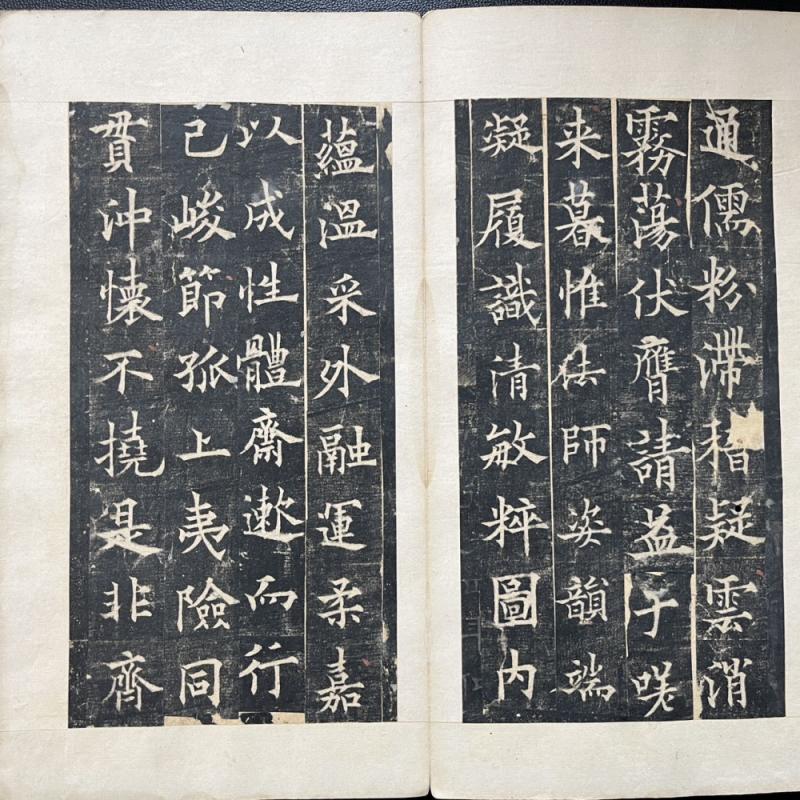 通儒粉滯稽疑雲消
霧蕩伏膺請益于嗟
来暮惟法師姿韻端
凝履識清敏粹圖內
蘊溫采外融運柔嘉
以成性體齋遬而行
己峻節孤上夷險同
貫沖懷不撓是非齊